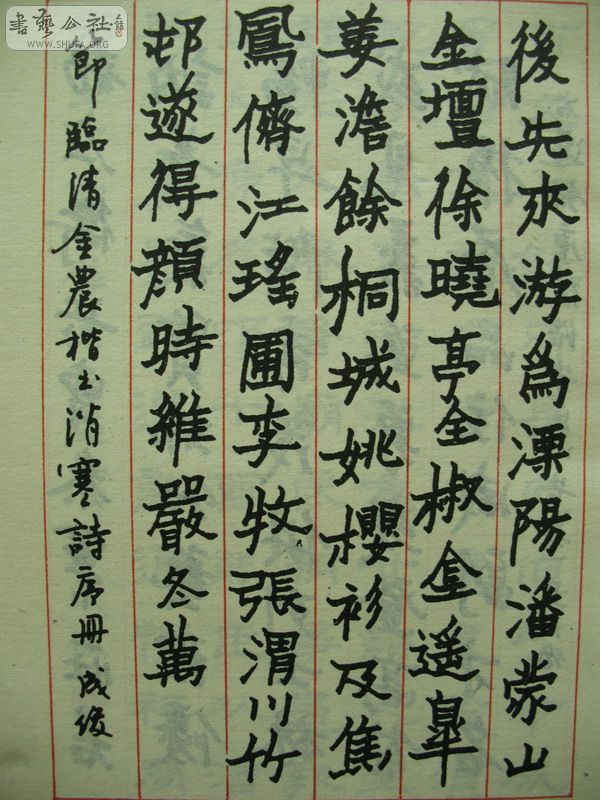 後先來游爲溧陽潘蒙山
金壇徐曉亭金椒金遥皋
姜澹餘桐城姚櫻衫及焦
鳳儕江瑤圃李牧張渭川竹
邨遂得顏時雖嚴冬萬
節臨清金農楷書消寒詩序冊成俊
書藝公社
WWW.SHUFA.ORG